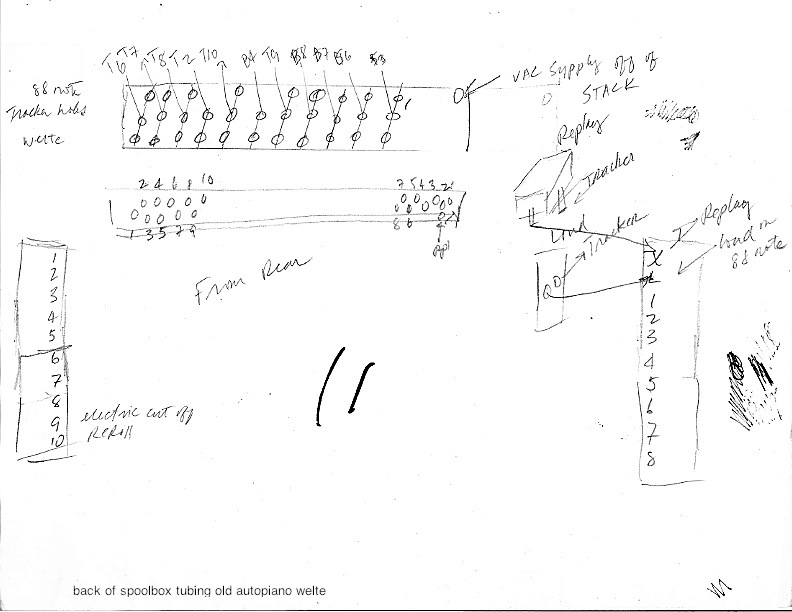 T6 T7 T8 T2 T10 B4 T9 B8 B7 B6 B3
VAC Supply off of
STACK
88 note
Tracker holes
Welte
Replay
Tracker
2 4 6 8 10
7 5 4 3 2
1 3 5 7 9
8 6
Tracker
Replay
Loud on
88 note
From Rear
X
1
2
3
4
5
6
7
8
1
2
3
4
5
6
7
8
9
10
electric cut off
ReRoll
back of spoolbox tubing old autopiano welte